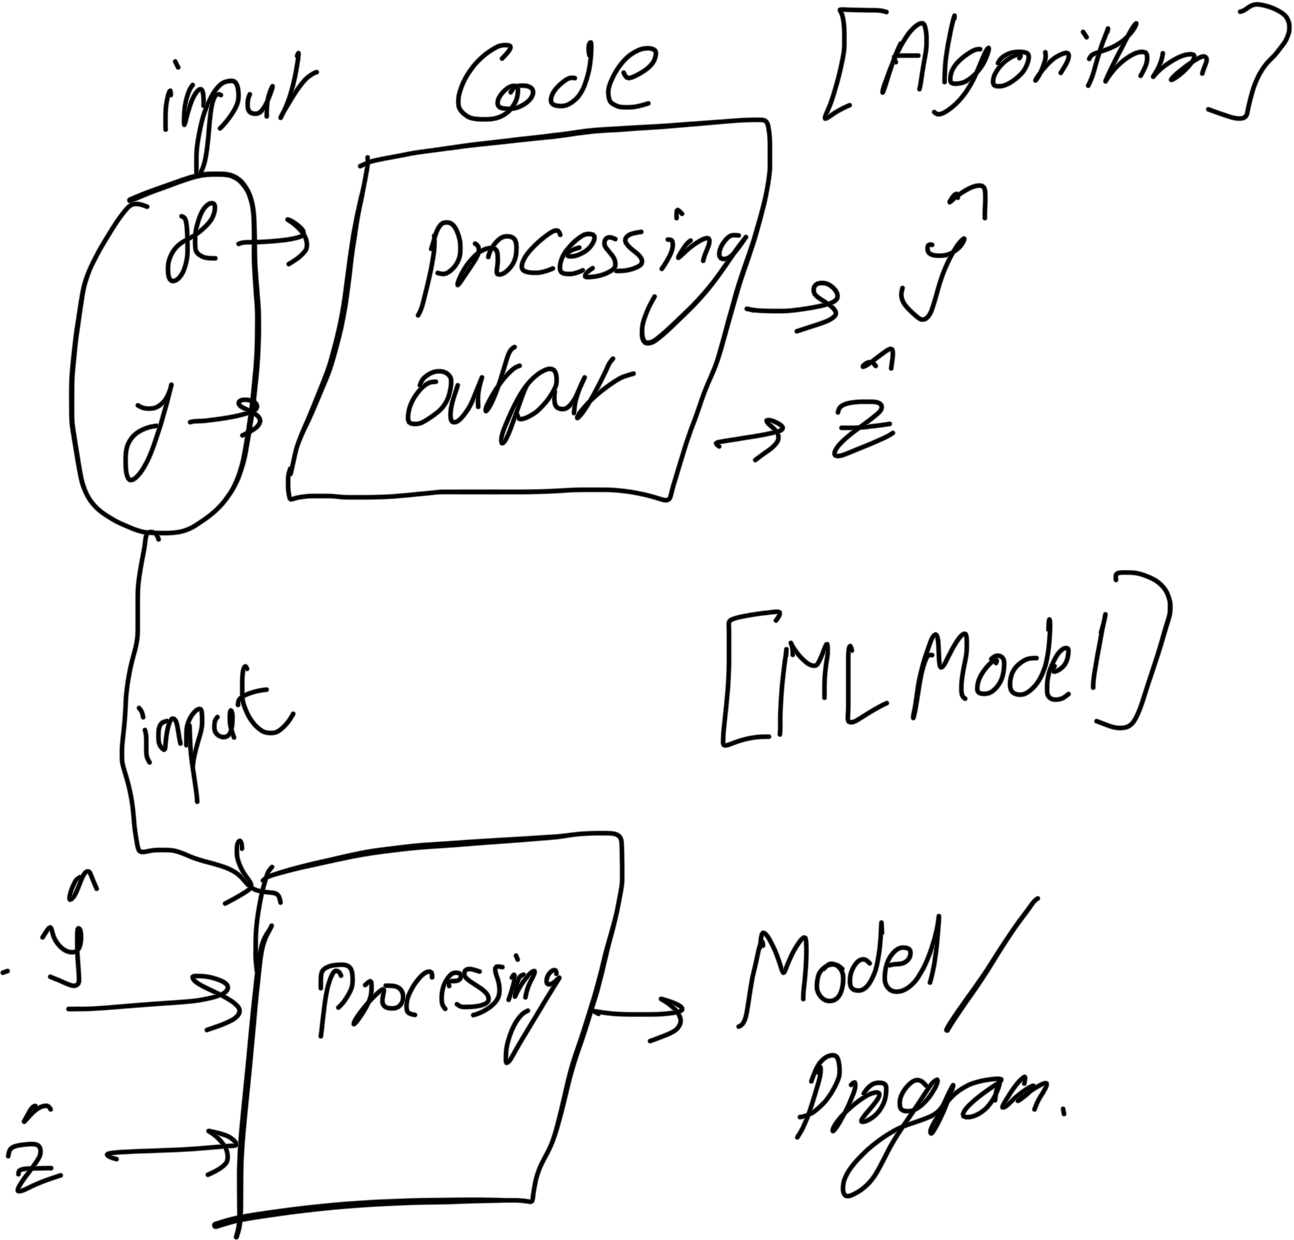 input Code [Algorithm]
x
processing
ŷ
output
y
ẑ
[ML Model]
input
ŷ
processing
Model/
Program.
ẑ